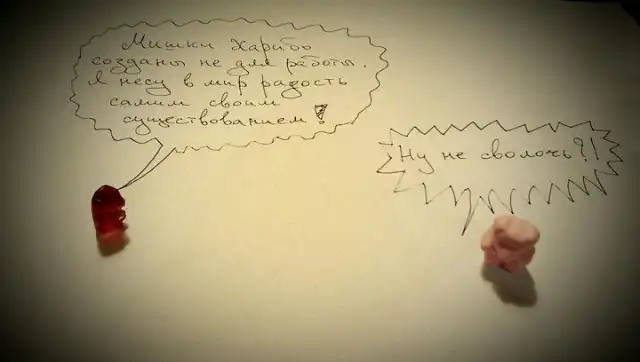 Мишки Харибо
созданы не для работы.
Я несу в мир радость
самим своим
существованием!
Ну не сволочь?!